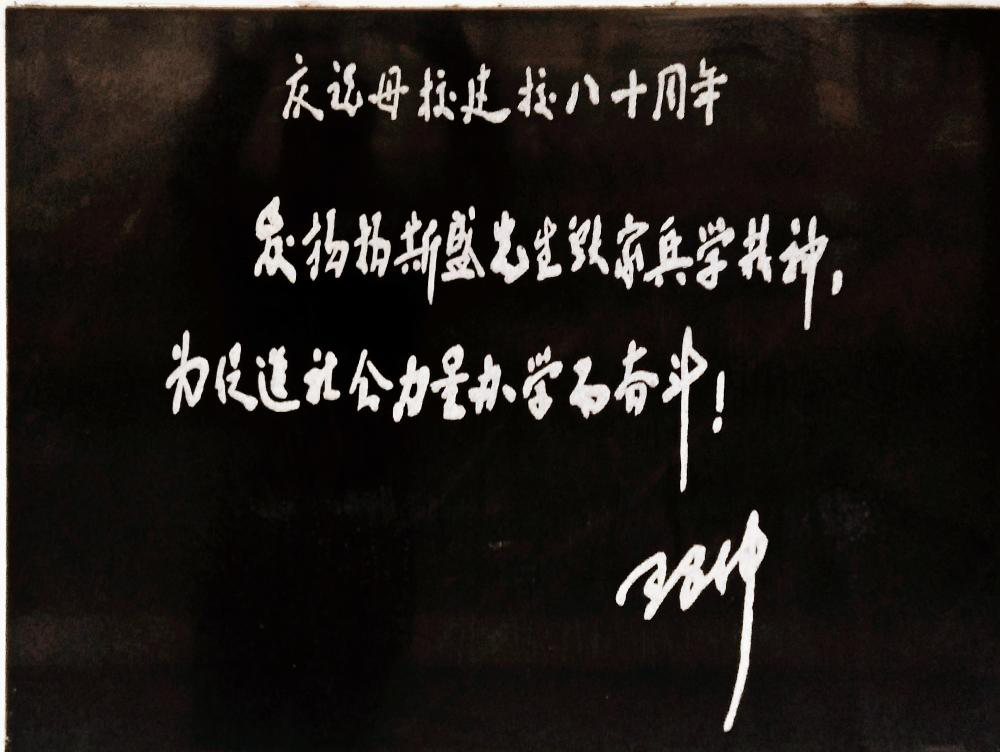 庆祝母校建校八十周年
发扬杨斯盛先生毁家兴学精神，
为促进社会力量办学而奋斗！
王艮仲